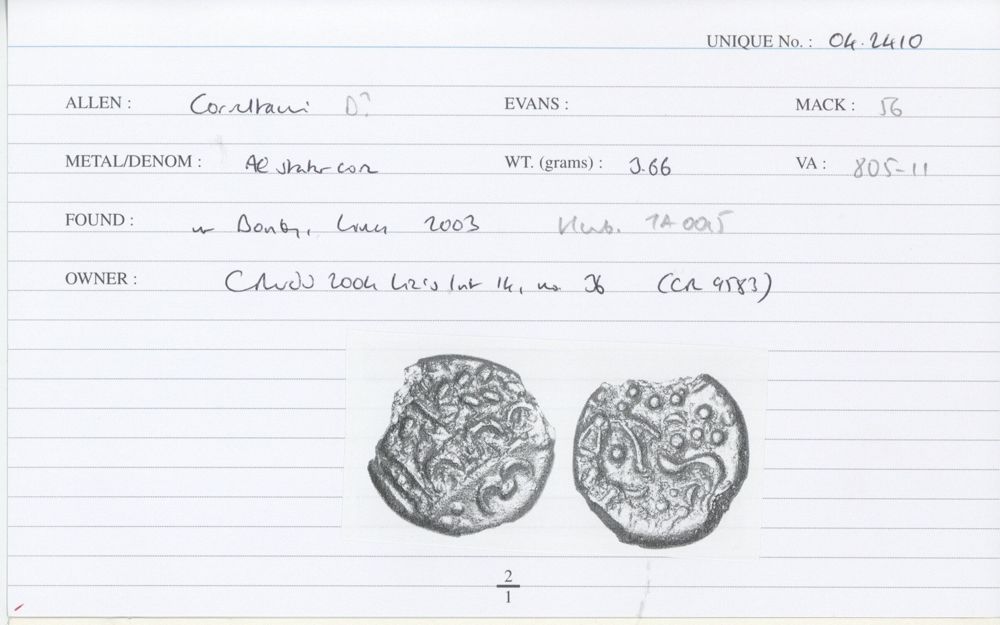 UNIQUE No. : 04.2410
ALLEN : Corieltauvi D? EVANS : MACK : 56
METAL/DENOM : AE stater core WT. (grams) : 3.66 VA : 805-11
FOUND : nr Bonby, Lincs 2003
OWNER : 2004 List 14, no. 36 (CR 9583)
2
1